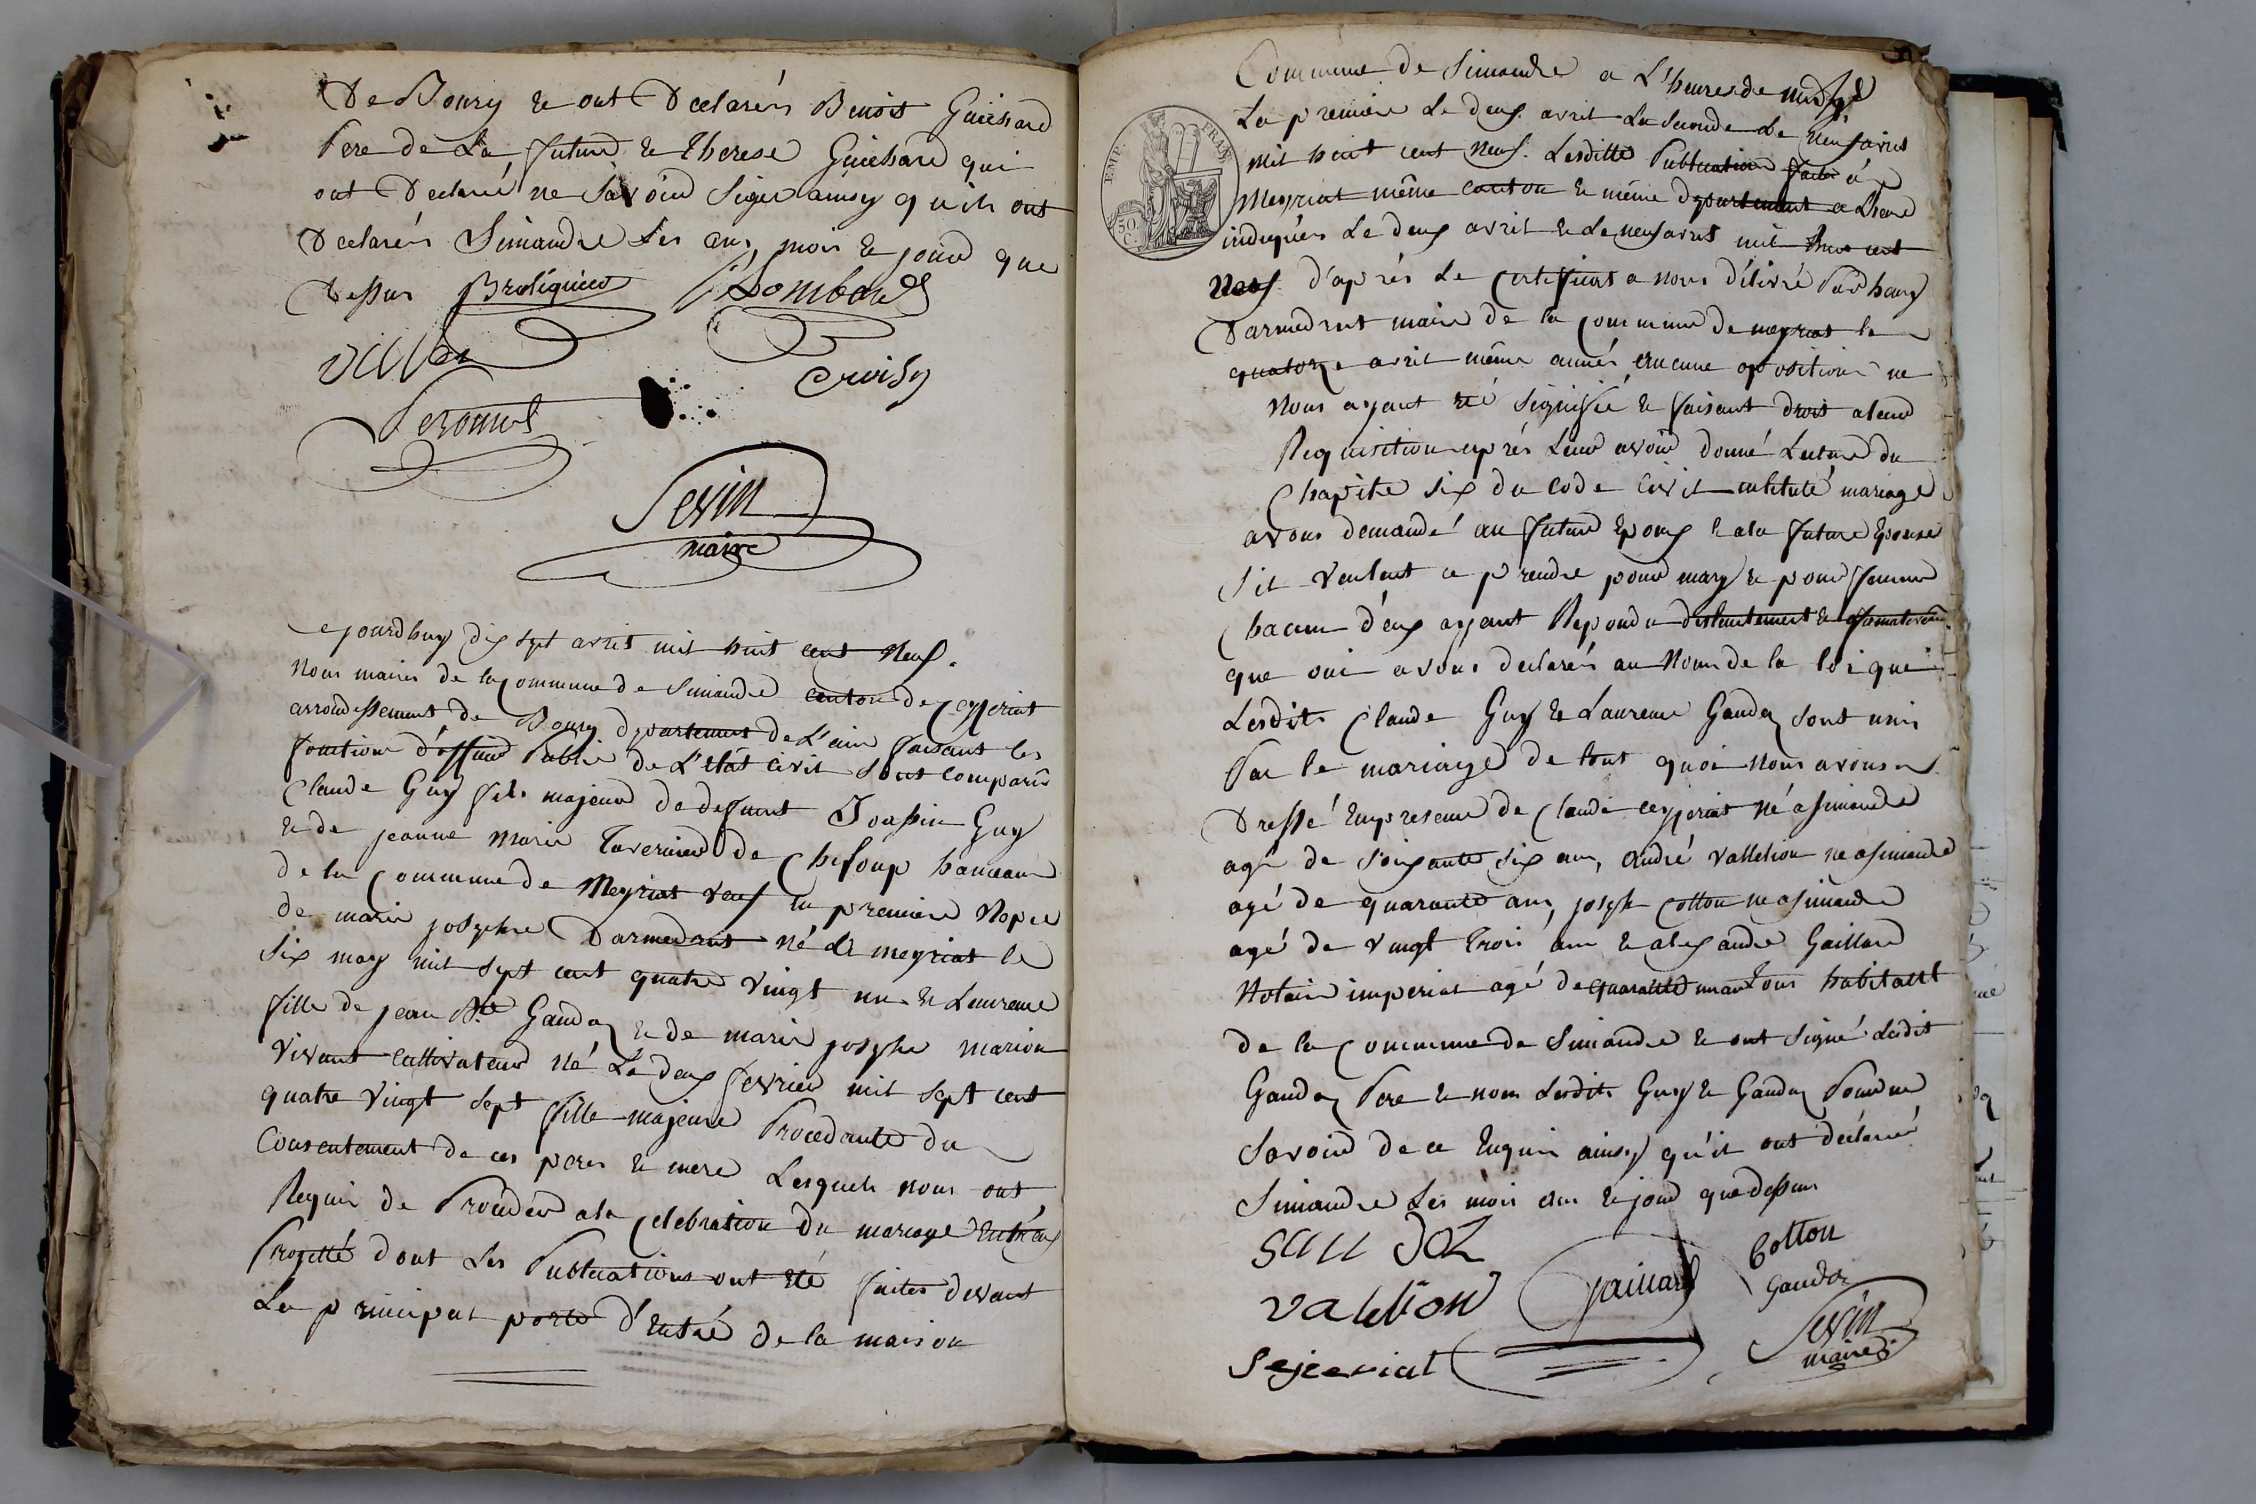 De Bourg et ont Declarés Benoit Guichard
Pere de La future et Therese Guichard qui
ont Declaré ne Savoir Signer ainsy quils ont
Declarés Simandre Les ans, mois et jour que
Dessus Broliquier Lombard
Croisy
Peronnet
Sevin
maire
ejourdhuy dix sept avril mil huit cent Neuf.
Nous maires de la Commune de Simandre canton de Ceyzeriat
arrondissement de Bourg departement de L'ain faisant les
fonction d'officier Public de L'etat civil sont comparus
Claude Guy fils majeur de defunt Joassin Guy
et de jeanne Marie Tavernier de Chifoup hameau
de la Commune de Meyriat veuf en premiere Nopce
de marie josephte Darmedrut né a meyriat le
six may mil sept cent quatre vingt un et Laurence
fille de jean Bte Gandoz et de marie josephe marion
vivant cultivateur né Le deux fevrier mil sept cent
quatre vingt sept fille majeure Procedante du
Consentement de ces peres et mere Lesquels nous ont
Requis de Proceder a la Celebration du mariage Entr'eux
Projetté dont Les Publications ont été faites devant
La principal porte d'Entré de la maison
Commune de Simandre a L'heure de midy
EMP. FRAN.
50 C.
La premiere Le deux avril La Seconde Le Neuf avril
mil huit cent Neuf. Lesdittes Publication faite á
Meyriat même canton et même departement a L'heure
indiqués Le deux avril et Le neuf avril mil huit cent
Neuf. d'aprés Le Certificat a nous délivré Par
Darmedrut maire de la Commune de meyriat le
quatorze avril même année aucune opposition ne
Nous ayant été signifié et faisant droit a leur
Requisition aprés Leur avoir donné Lecture du
Chapitre Six du Code Civil intitulé mariage
avons demandé au futur Epoux et a la future Epouse
S'il veulent ce prendre pour mary et pour femme
Chacun d'eux ayant Repondu distinctement et afirmativement
que oui avons declarés au Nom de la loi que
Lesdits Claude Guy et Laurence Gandoz sont unis
Par le mariage de tout quoi Nous avons
Dressé En presence de Claude ceyzeriat né a simandre
agé de soixante six ans, André vallelion né a simandre
agé de quarante ans, joseph Cotton né a simandre
agé de vingt trois ans et alexandre Gaillard
Notaire imperial agé de quarante un ans Tous habitant
de la Commune de Simandre et ont signé Ledit
Gandoz Pere et non Lesdits Guy et Gandoz Pour ne
Savoir de ce Enquis ainsy qu'il ont déclaré
Simandre Les mois ans et jour que dessus
Gaillard Cotton
Gandoz
vallelion
Sevin
maire
Sejeeriat